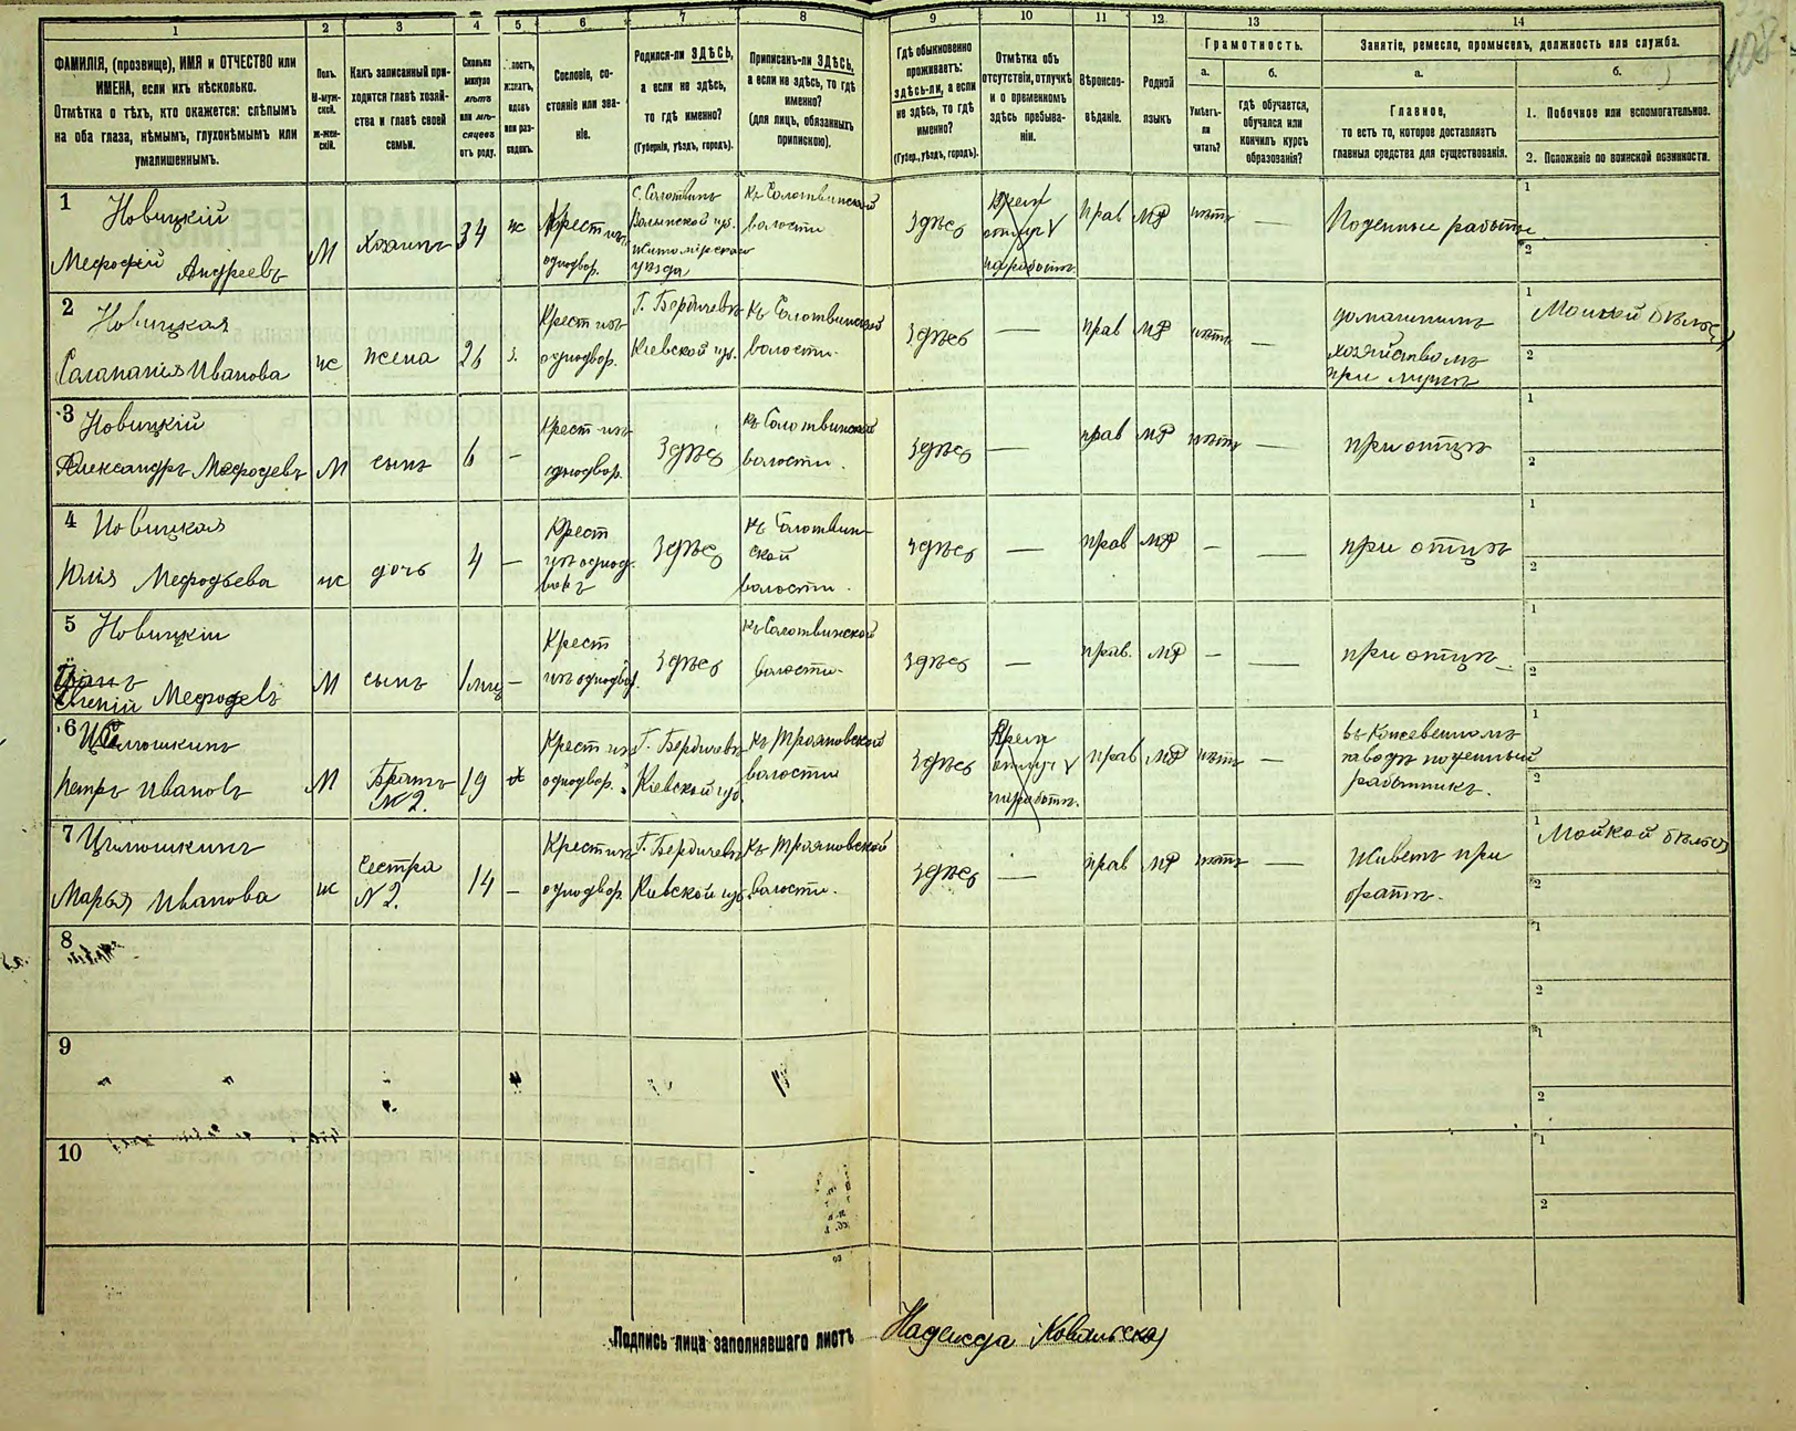 1 2 3 4 5 6 7 8 9 10 11 12 13 14
ФАМИЛІЯ, (прозвище), ИМЯ и ОТЧЕСТВО или
ИМЕНА, если ихъ нѣсколько.
Отмѣтка о тѣхъ, кто окажется: слѣпымъ
на оба глаза, нѣмымъ, глухонѣмымъ или
умалишеннымъ.
Полъ.
М-муж-
ской.
ж-жен-
скій.
Какъ записанный при-
ходится главѣ хозяй-
ства и главѣ своей
семьи.
Сколько
минуло
лѣтъ
или мѣ-
сяцевъ
отъ роду.
женатъ,
вдовъ
или раз-
веденъ.
Сословіе, со-
стояніе или зва-
ніе.
Родился-ли ЗДѢСЬ,
а если не здѣсь,
то гдѣ именно?
(Губернія, уѣздъ, городъ).
Приписанъ-ли ЗДѢСЬ,
а если не здѣсь, то гдѣ
именно?
(для лицъ, обязанныхъ
припискою).
Гдѣ обыкновенно
проживаетъ:
здѣсь-ли, а если
не здѣсь, то гдѣ
именно?
(Губер., уѣздъ, городъ).
Отмѣтка объ
отсутствіи, отлучкѣ
и о временномъ
здѣсь пребыва-
ніи.
Вѣроиспо-
вѣданіе.
Родной
языкъ
Грамотность.
а.
Умѣетъ-
ли
читать?
б.
гдѣ обучается,
обучался или
кончилъ курсъ
образованія?
Занятіе, ремесло, промыселъ, должность или служба.
а.
Главное,
то есть то, которое доставляетъ
главныя средства для существованія.
б.
1. Побочное или вспомогательное.
2. Положеніе по воинской повинности.
1 Новицкій
Мефодій Андреевъ
М
Хозяинъ
34
ж
Крест изъ
однодвор.
с. Солотвинъ
Волынской губ.
Житомірскаго
уѣзда
Къ Солотвинской
волости
Здѣсь
Врем
отлуч
на работ.
прав
МР
нѣтъ
—
Поденные работы
1
2
2 Новицкая
Иванова
ж
жена
26
з.
Крест изъ
однодвор.
Г. Бердичевъ
Кіевской губ.
Къ Солотвинской
волости.
Здѣсь
—
прав
МР
нѣтъ
—
домашнимъ
хозяйствомъ
при мужѣ
1 Мойкой бѣлья
2
3 Новицкій
Александръ Мефодіевъ
М
сынъ
6
—
Крест изъ
однодвор.
Здѣсь
Къ Солотвинской
волости.
Здѣсь
—
прав
МР
нѣтъ
—
при отцѣ
1
2
4 Новицкая
Юлія Мефодьева
ж
дочь
4
—
Крест
изъ однод-
вор
Здѣсь
Къ Солотвин-
ской
волости.
Здѣсь
—
прав
МР
—
—
при отцѣ
1
2
5 Новицкій
Евгеній Мефодьевъ
М
сынъ
1 мц
—
Крест
изъ однодвор.
Здѣсь
Къ Солотвинской
волости.
Здѣсь
—
прав.
МР
—
—
при отцѣ
1
2
6 Цѣлюшкинъ
Петръ Ивановъ
М
Братъ
№ 2.
19
х
Крест изъ
однодвор.
Г. Бердичевъ
Кіевской губ.
Къ Трояновской
волости
Здѣсь
Врем
отлуч
на работ.
прав
МР
нѣтъ
—
въ Кожевенномъ
заводѣ поденный
работникъ.
1
2
7 Цѣлюшкинъ
Марья Иванова
ж
Сестра
№ 2.
14
—
Крест изъ
однодвор
Г. Бердичевъ
Кіевской губ.
Къ Трояновской
волости.
Здѣсь
—
прав
МР
нѣтъ
—
Живетъ при
братѣ.
1 Мойкой бѣлья
2
8
1
2
9
1
2
10
1
2
Подпись лица заполнявшаго листъ Надежда